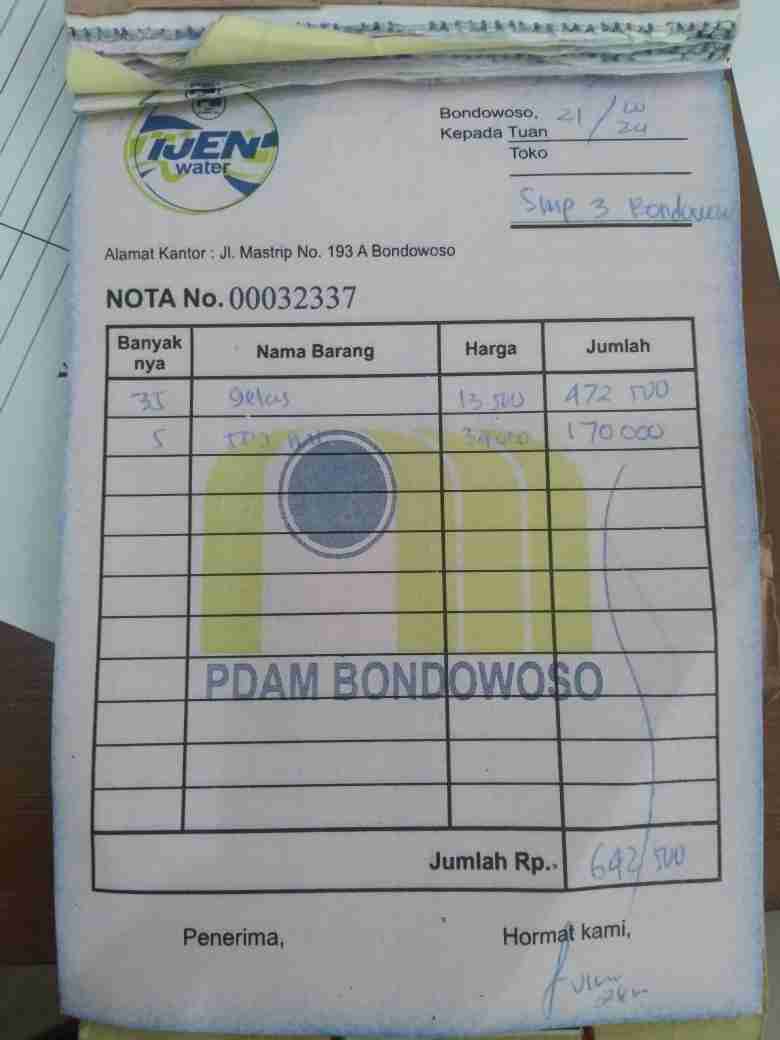 IJEN
water
Bondowoso, 21/10
24
Kepada Tuan
Toko
Smp 3 Bondowoso
Alamat Kantor : Jl. Mastrip No. 193 A Bondowoso
NOTA No. 00032337
Banyak nya Nama Barang Harga Jumlah
35 gelas 13 500 472 500
5 34 000 170 000
PDAM BONDOWOSO
Jumlah Rp.. 642 500
Penerima, Hormat kami,